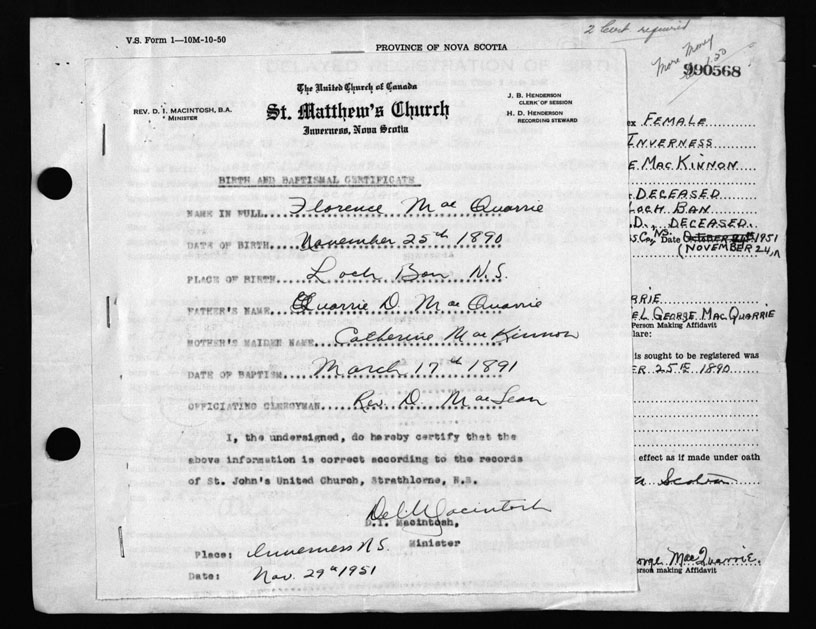 2 Cert required
V.S. Form 1—10M-10-50
PROVINCE OF NOVA SCOTIA
990568
The United Church of Canada
St. Matthew's Church
Inverness, Nova Scotia
REV. D. I. MACINTOSH, B.A.
MINISTER
J. B. HENDERSON
CLERK OF SESSION
H. D. HENDERSON
RECORDING STEWARD
BIRTH AND BAPTISMAL CERTIFICATE
NAME IN FULL Florence MacQuarrie
DATE OF BIRTH November 25th 1890
PLACE OF BIRTH Loch Ban N.S.
FATHER'S NAME Quarrie D. MacQuarrie
MOTHER'S MAIDEN NAME Catherine MacKinnon
DATE OF BAPTISM March 17th 1891
OFFICIATING CLERGYMAN Rev. D. MacLean
I, the undersigned, do hereby certify that the
above information is correct according to the records
of St. John's United Church, Strathlorne, N.S.
D.I. Macintosh
D.I. Macintosh,
Minister
Place: Inverness N.S.
Date: Nov. 29th 1951
ex FEMALE
INVERNESS
E MACKINNON
DECEASED
LOCH BAN
D., DECEASED
Date 1951
(NOVEMBER 24,
RRIE
EL GEORGE MACQUARRIE
Person Making Affidavit
lare:
is sought to be registered was
ER 25TH 1890
effect as if made under oath
Scotian
eorge MacQuarrie
erson making Affidavit